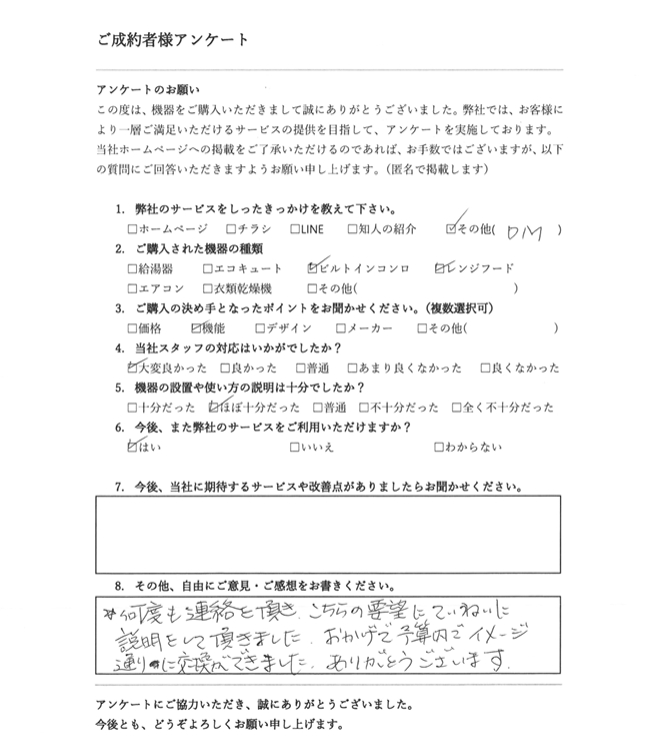 ご成約者様アンケート
アンケートのお願い
この度は、機器をご購入いただきまして誠にありがとうございました。弊社では、お客様に
より一層ご満足いただけるサービスの提供を目指して、アンケートを実施しております。
当社ホームページへの掲載をご了承いただけるのであれば、お手数ではございますが、以下
の質問にご回答いただきますようお願い申し上げます。(匿名で掲載します)
1. 弊社のサービスをしったきっかけを教えて下さい。
□ホームページ □チラシ □LINE □知人の紹介 ☑その他( DM )
2. ご購入された機器の種類
□給湯器 □エコキュート ☑ビルトインコンロ ☑レンジフード
□エアコン □衣類乾燥機 □その他( )
3. ご購入の決め手となったポイントをお聞かせください。(複数選択可)
□価格 ☑機能 □デザイン □メーカー □その他( )
4. 当社スタッフの対応はいかがでしたか？
☑大変良かった □良かった □普通 □あまり良くなかった □良くなかった
5. 機器の設置や使い方の説明は十分でしたか？
□十分だった ☑ほぼ十分だった □普通 □不十分だった □全く不十分だった
6. 今後、また弊社のサービスをご利用いただけますか？
☑はい □いいえ □わからない
7. 今後、当社に期待するサービスや改善点がありましたらお聞かせください。
8. その他、自由にご意見・ご感想をお書きください。
何度も連絡を頂き、こちらの要望にていねいに
説明をして頂きました。おかげで予算内でイメージ
通りに交換ができました。ありがとうございます。
アンケートにご協力いただき、誠にありがとうございました。
今後とも、どうぞよろしくお願い申し上げます。